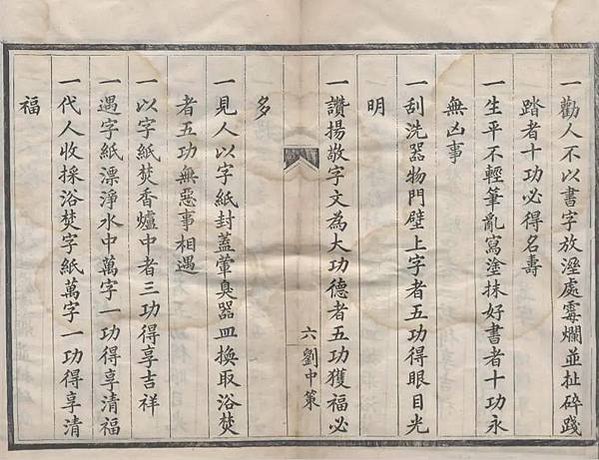 一勸人不以書字放溼處霉爛並扯碎踐
踏者十功必得名壽
一生平不輕筆亂寫塗抹好書者十功永
無凶事
一刮洗器物門壁上字者五功得眼目光
明
一讚揚敬字文為大功德者五功獲福必
多
六 劉中策
一見人以字紙封蓋葷臭器皿換取浴焚
者五功無惡事相遇
一以字紙焚香爐中者三功得享吉祥
一遇字紙漂淨水中萬字一功得享清福
一代人收採浴焚字紙萬字一功得享清
福